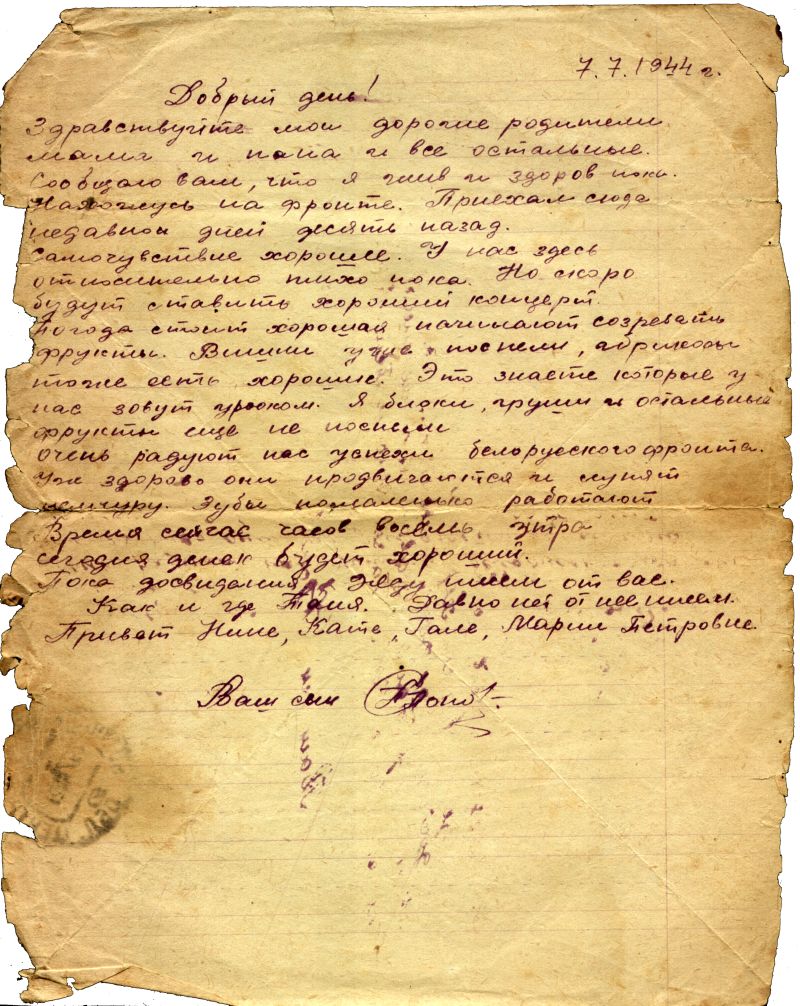 7.7.1944 г.
Добрый день!
Здравствуйте мои дорогие родители
мама и папа и все остальные.
Сообщаю вам, что я жив и здоров пока.
Нахожусь на фронте. Приехал сюда
недавно дней десять назад.
Самочувствие хорошее. У нас здесь
относительно тихо пока. Но скоро
будут ставить хороший концерт.
Погода стоит хорошая начинают созревать
фрукты. Вишни уже поспели, абрикосы
тоже есть хорошие. Это знаете которые у
нас зовут урюком. Яблоки, груши и остальные
фрукты еще не поспели
Очень радуют нас успехи белорусского фронта.
Уж здорово они продвигаются и лупят
немчуру. Зубы помаленьку работают
Время сейчас часов восемь утра
сегодня денек будет хороший.
Пока досвидания. Жду писем от вас.
Как и где Таня. Давно нет от нее писем.
Привет Нине, Кате, Гале, Марии Петровне
Ваш сын